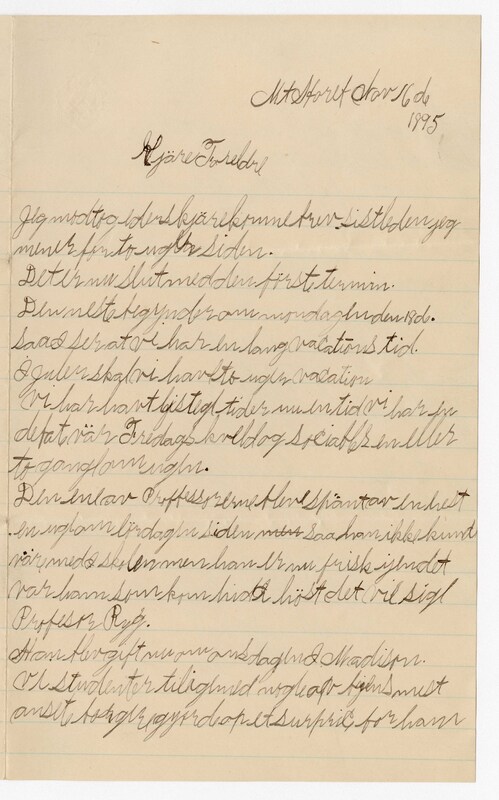 Mt Horeb Nov 16 de
1895
Kjäre Foreldre
Jeg modtog eders kjärekomne brev sistleden jeg
mener for to uger siden.
Det er nu slut med den förste termin.
Den neste begynder om mondagen den 18 de.
saa I ser at vi har en lang vacations tid.
I juler skal vi have to uger vacation
Vi har havt tider nu en tid vi har en
debat vär Fredags kveld og sociabler en eller
to gang om ugen.
Den ene av Professorerne bleve spänt av en hest
en uge om lördagen siden men saa han ikke kunde
väre med I skolen men han er nu frisk ijen det
var ham som kom hid I höst det vil sige
Profesor Ryg.
Han blev gift nu om onsdagen I Madison.
Vi studenter tiligemed nogle av byens mest
ansete borgere gjorde op et surprie for ham